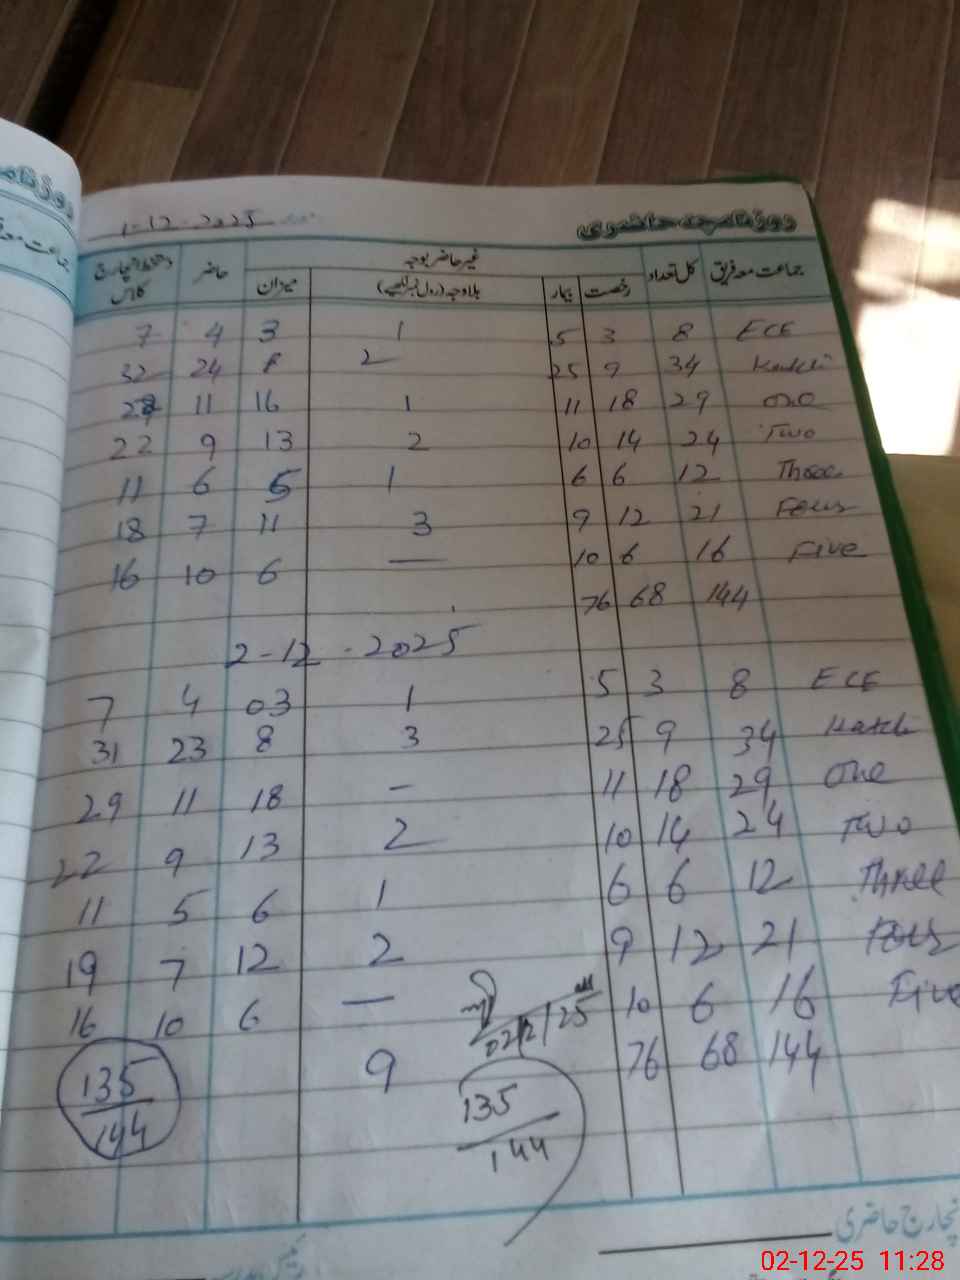 روزنامچہ حاضری 1-12-2025
جماعت معہ فریق کل تعداد غیر حاضر بوجہ حاضر
رخصت بیمار بلاوجہ (رول نمبر لکھیے) میزان کلاس
7 4 3 1 5 3 8 ECE
32 24 8 2 25 9 34 Katchi
11 16 1 11 18 29 One
22 9 13 2 10 14 24 Two
11 6 5 1 6 6 12 Three
18 7 11 3 9 12 21 Four
16 10 6 — 10 6 16 Five
76 68 144
2-12-2025
7 4 03 1 5 3 8 ECE
31 23 8 3 25 9 34 Katchi
29 11 18 - 11 18 29 One
22 9 13 2 10 14 24 Two
11 5 6 1 6 6 12 Three
19 7 12 2 9 12 21 Four
16 10 6 — 10 6 16 Five
02/12/25
135/144 9 76 68 144
135/144
انچارج حاضری
02-12-25 11:28